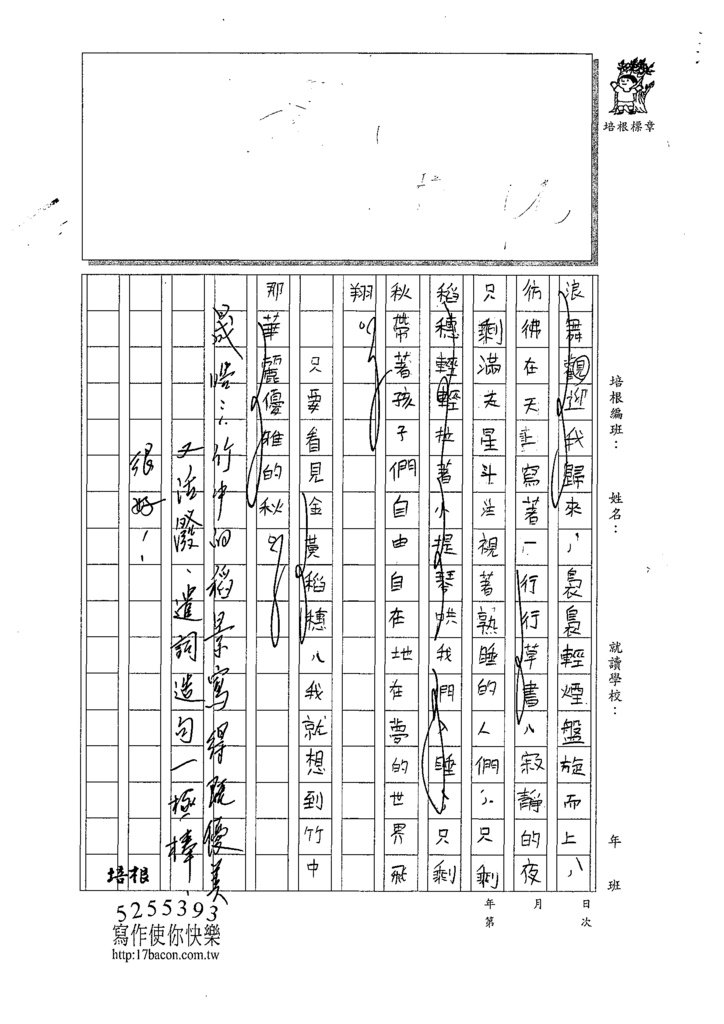 培根標章
培根編班：
姓名：
就讀學校：
年
班
日
次
月
年
第
浪舞觀迎我歸來，裊裊輕煙盤旋而上，
彷彿在天上寫著一行行草書，寂靜的夜
只剩滿天星斗注視著熟睡的人們；只剩
稻穗輕輕拉著小提琴哄我們入睡；只剩
秋帶著孩子們自由自在地在夢的世界飛
翔。
只要看見金黃稻穗，我就想到竹中
那華麗優雅的秋。
晟皓：竹中的稻景寫得既優美
又活潑，遣詞造句一極棒，
很好！
培根
5255393
寫作使你快樂
http:17bacon.com.tw